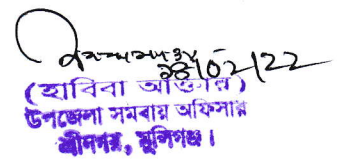 ২৪/০২/22
(হাবিবা আক্তার)
উপজেলা সমবায় অফিসার
শ্রীনগর, মুন্সিগঞ্জ।